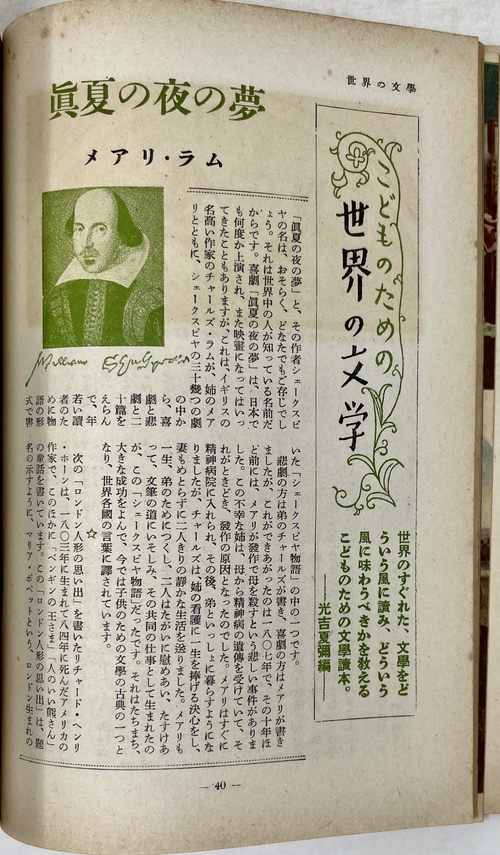 世界の文學
こどものための
世界の文学
世界のすぐれた 文學をど
ういう風に讀み、どういう
風に味わうべきかを教える
こどものための文學讀本。
光吉夏彌編
眞夏の夜の夢
メアリ・ラム
「眞夏の夜の夢」と、その作者シェークスピ
ヤの名は、おそらく、どなたでもご存じでし
ょう。それは世界中の人が知っている名前だ
からです。喜劇「眞夏の夜の夢」は、日本で
も何度か上演され、また映畫になってはいっ
てきたこともありますが、これは、イギリスの
名高い作家のチャールズ・ラムが、姉のメア
リとともに、シェークスピヤの三十幾つの劇
の中か
ら、喜
劇と悲
劇と二
十篇を
えらん
で、年
若い讀
者のた
めに物
語の形
式で書
いた「シェークスピヤ物語」の中の一つです。
悲劇の方は弟のチャールズが書き、喜劇の方はメアリが書き
ましたが、これができあがったのは一八〇七年で、その十年ほ
ど前には、メアリが發作で母を殺すという悲しい事件がありま
した。この不幸な姉は、母から精神病の遺傳を受けていて、そ
れがときどき、發作の原因となったのでした。メアリはすぐに
精神病院に入れられ、その後、弟といっしょに暮らすようにな
りましたが、チャールズは、姉の看護に一生を捧げる決心をし、
妻もめとらずに二人きりの靜かな生活を送りました。メアリも
一生、弟のためにつくし、二人はたがいに慰めあい、たすけあ
って、文筆の道にいそしみ、その共同の仕事として生まれたの
が、この「シェークスピヤ物語」だったです。それはたちまち、
大きな成功をよんで、今では子供のための文學の古典の一つと
なり、世界各國の言葉に譯されています。
☆
次の「ロンドン人形の思い出」を書いたリチャード・ヘンリ
・ホーンは、一八〇三年に生まれて八四年に死んだアメリカの
作家で、このほかに「ペンギンの王さま」「人のいい熊さん」
の童話を書いています。この「ロンドン人形の思い出」は、題
名の示すように、マリア・ポペットという、ロンドン生まれの
William
— 40 —